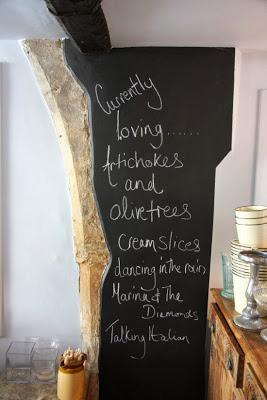 Currently
loving......
Artichokes
and
olivetrees
cream slices
dancing in the rain
Marina & The
Diamonds
Talking Italian